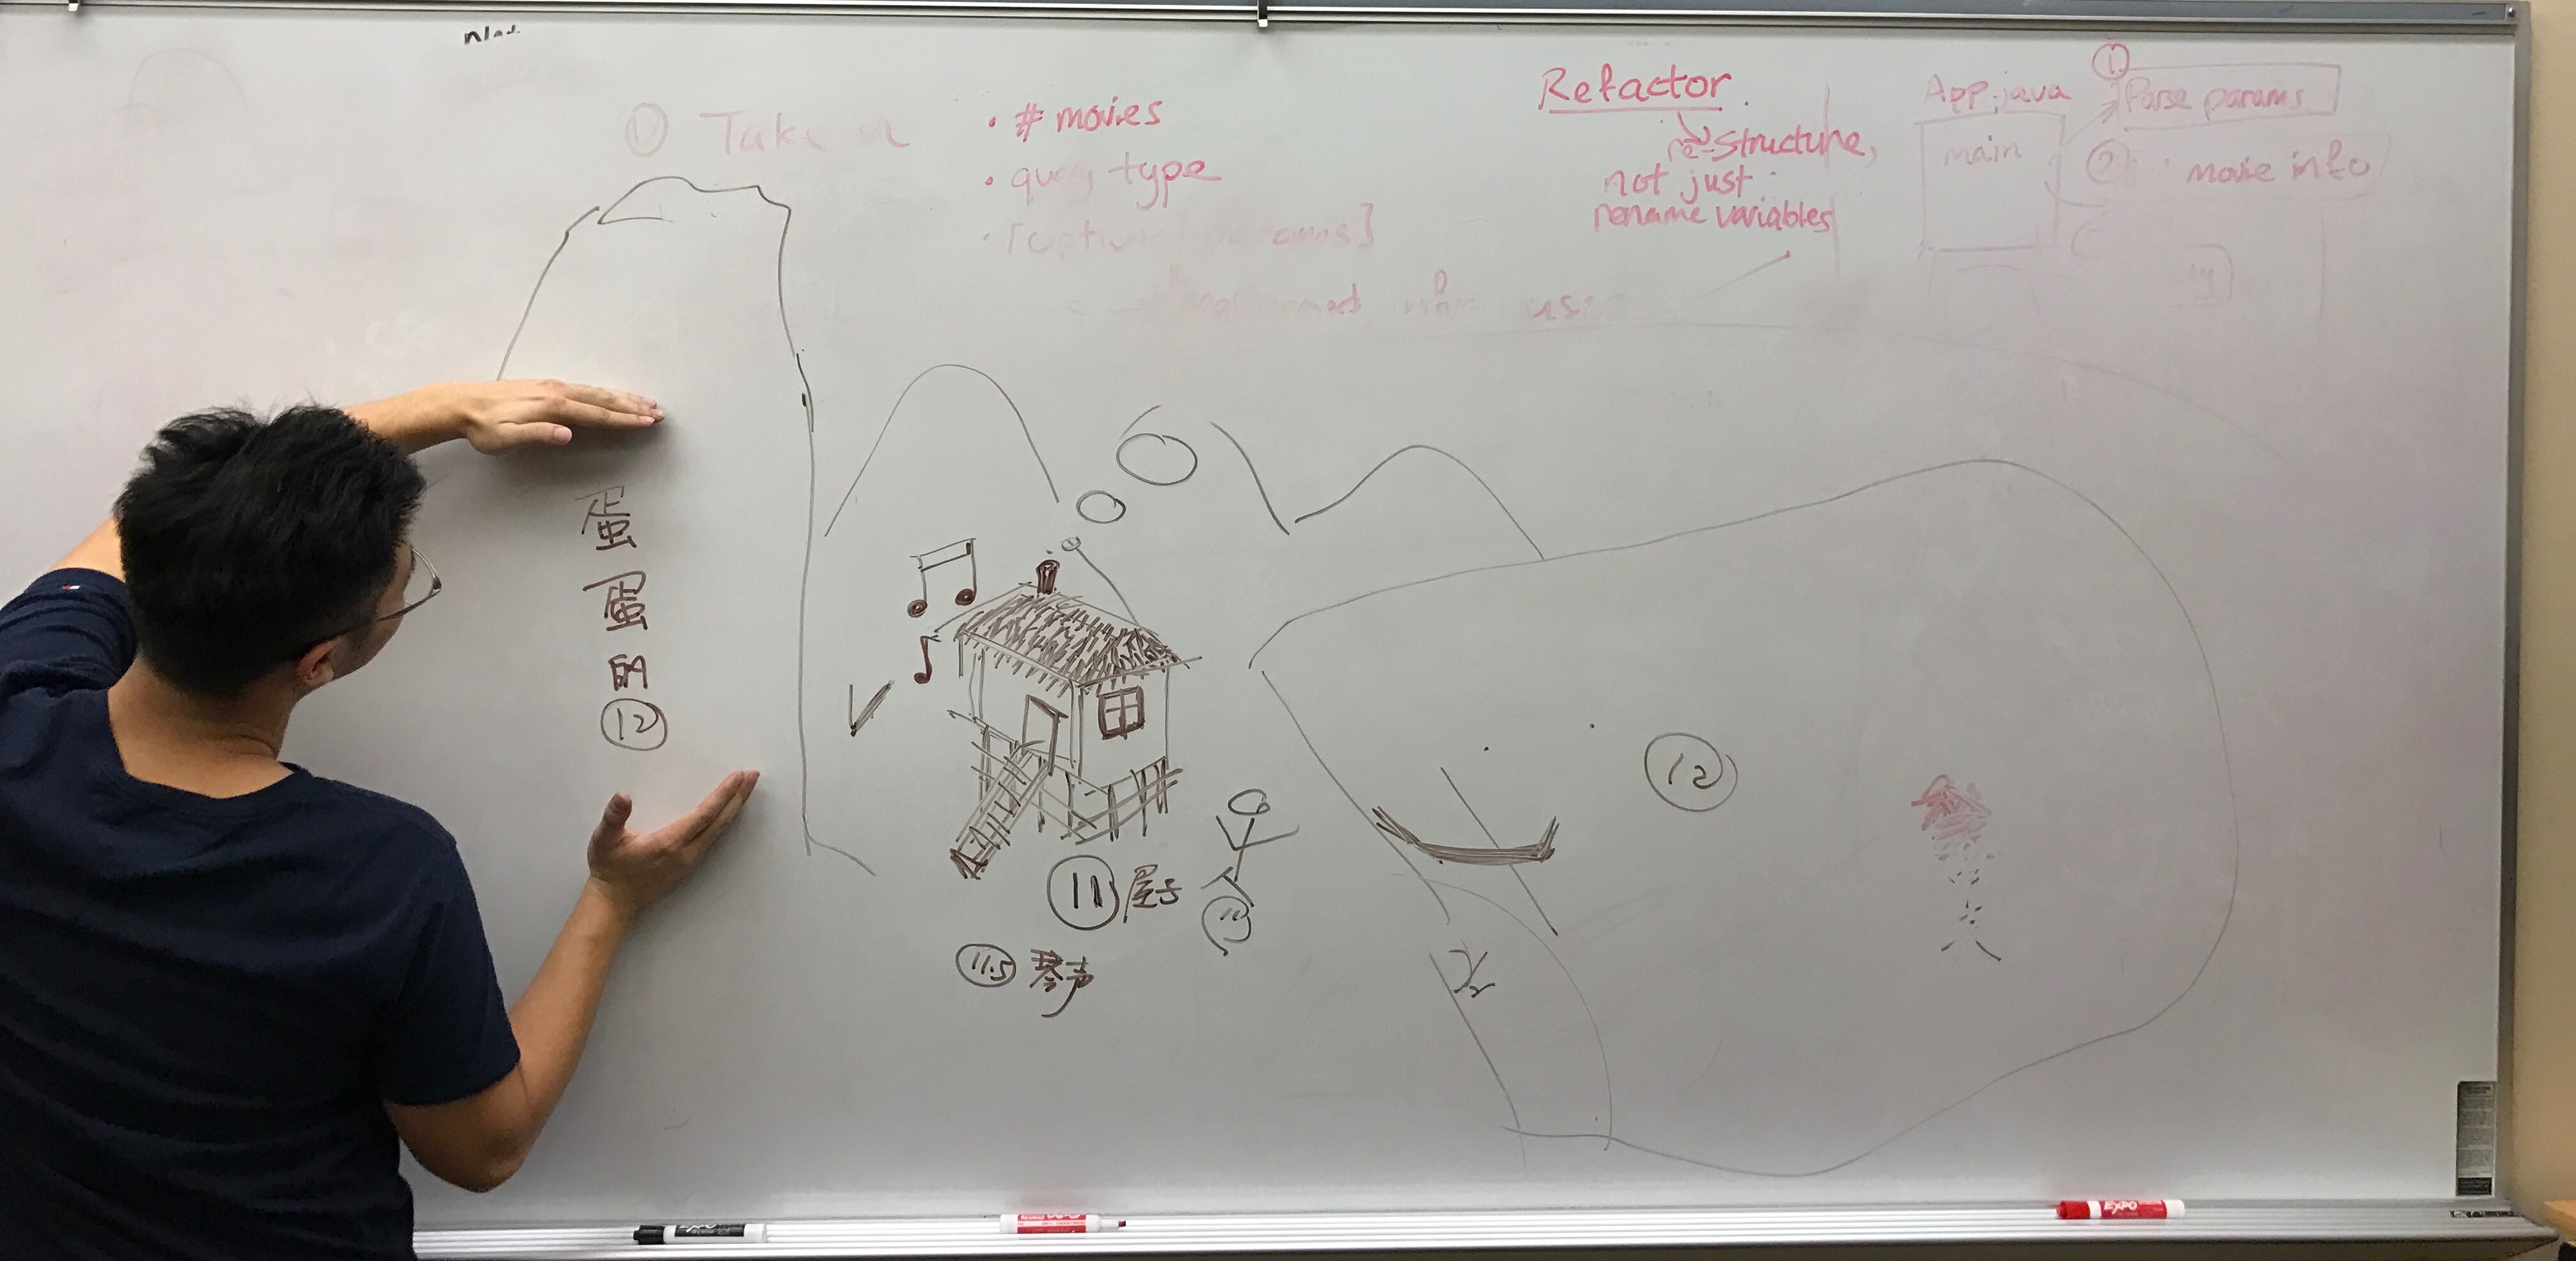 ① Take
• # movies
• query type
Refactor
re-structure,
not just
rename variables
App.java
main
①
Parse params
②
movie info
蛋
蛋
的
⑫
⑪ 屋子
11.5 琴声
⑫
EXPO